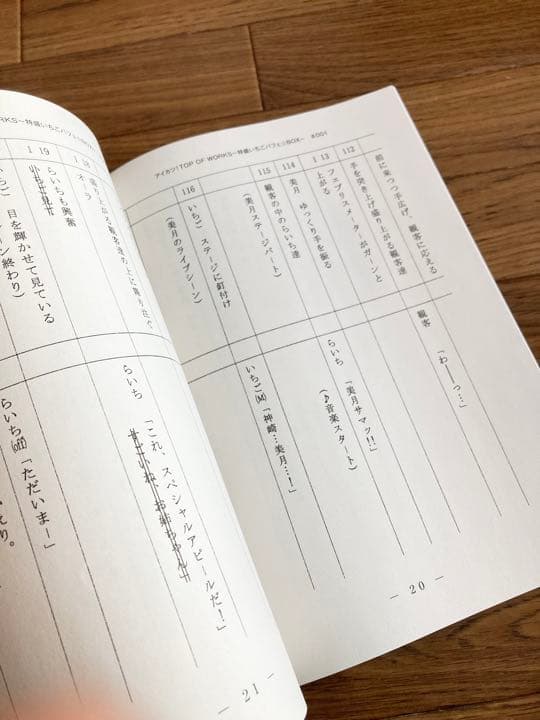 アイカツ！TOP OF WORKS～特盛いちごパフェ☆BOX～ #001
前に来つつ手広げ、観客に応える
観客 「わーーっ…」
112 手を突き上げ盛り上がる観客達
フェブリスメーターがガーンと
113 上がる
らいち 「美月サマッ!!」
(♪音楽スタート)
114 美月 ゆっくり手を振る
115 観客の中のらいち達
(美月ステージパート)
いちご(M)「神崎…美月…！」
116 いちご ステージに釘付け
(美月のライブシーン)
— 20 —
RKS～特盛いちごパフェ☆BOX～
118 盛り上がる観客達の上に降り注ぐ
オーラ
らいち 「これ、スペシャルアピールだ！」
すごいね、お姉ちゃん」
らいちも興奮
119 いちご見て
いちご 目を輝かせて見ている
ーン終わり)
らいち(off)「ただいまー」
えり。
— 21 —